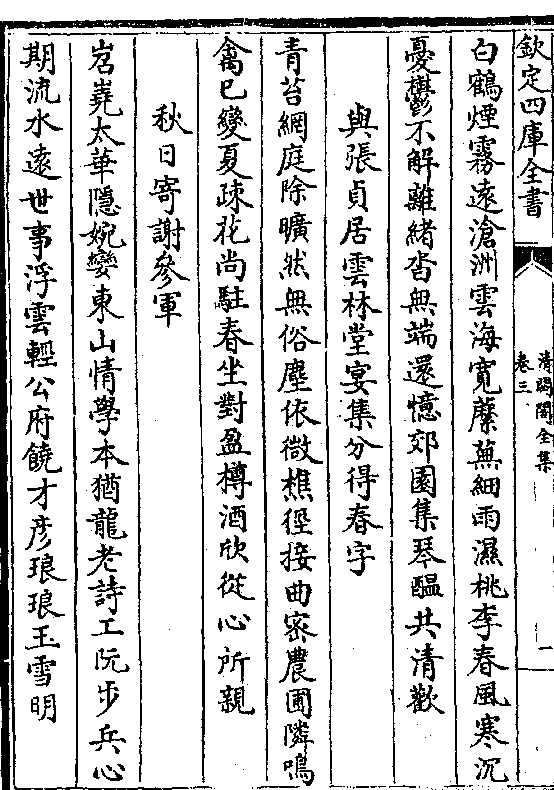 欽定四庫全書
清閟閣全集
卷三
二
白鶴煙霧遠滄洲雲海寛蘼蕪細雨濕桃李春風寒沉
憂鬱不解離緒杳無端還憶郊園集琴醖共清歡
與張貞居雲林堂宴集分得春字
青苔網庭除曠然無俗塵依微樵徑接曲密農圃隣鳴
禽已變夏疎花尚駐春坐對盈樽酒欣從心所親
秋日寄謝參軍
岧嶤太華隱婉孌東山情學本猶龍老詩工阮步兵心
期流水遠世事浮雲輕公府饒才彦琅琅玉雪明